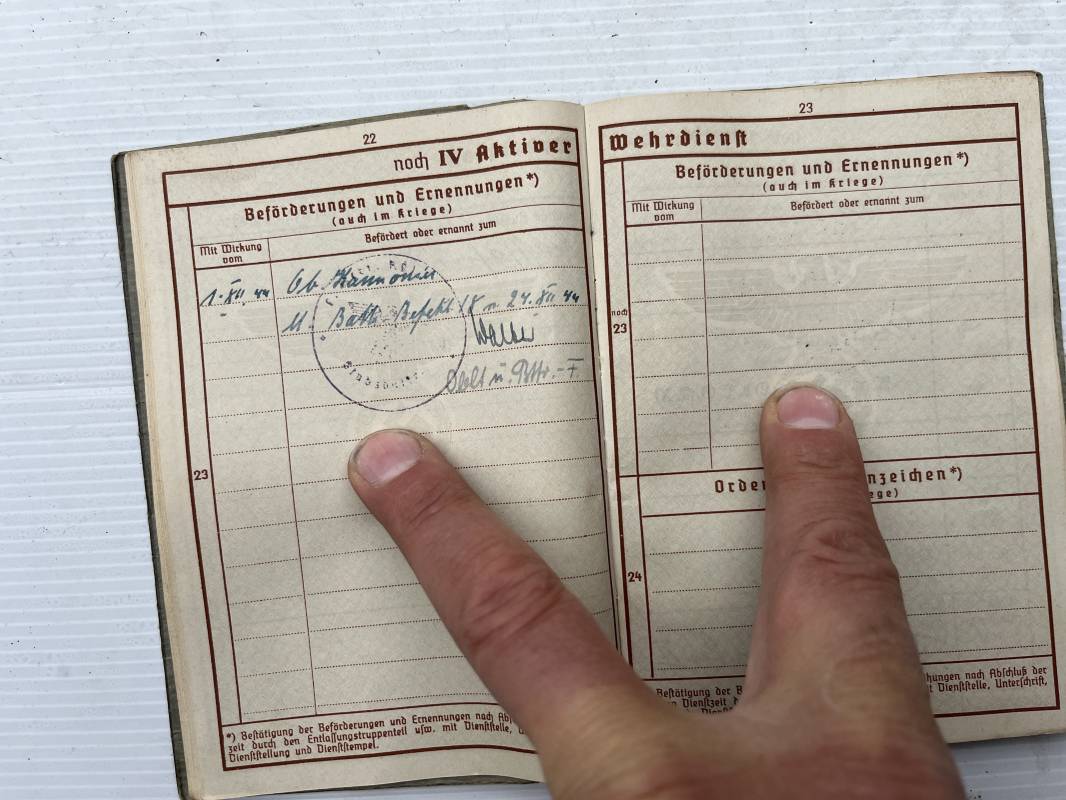 22
noch IV Aktiver
Beförderungen und Ernennungen*)
(auch im Kriege)
Mit Wirkung
vom
Befördert oder ernannt zum
1. XII 44 Ob. Kanonier
Battr. Befehl 24. XII 44
Oblt u. Bttr.-F
23
*) Bestätigung der Beförderungen und Ernennungen nach
zeit durch den Entlassungstruppenteil usw. mit Dienststelle,
Dienststellung und Dienststempel.
23
Wehrdienst
Beförderungen und Ernennungen*)
(auch im Kriege)
Mit Wirkung
vom
Befördert oder ernannt zum
noch
23
Orde nzeichen*)
ege)
24
Bestätigung der B hungen nach Abschluß der
Dienstzeit d t Dienststelle, Unterschrift,